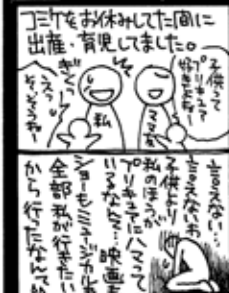 コミケをお休みしてた間に
出産・育児してました。
子供って
プリキュア
好きよね〜
ママ友
私
ぎくっ
えっ
そっそうね〜
言えない…
言えないわ
子供より
私のほうが
プリキュアにハマって
いるなんて…映画も
ショーもミュージカルも
全部私が行きたい
から行ったなんて